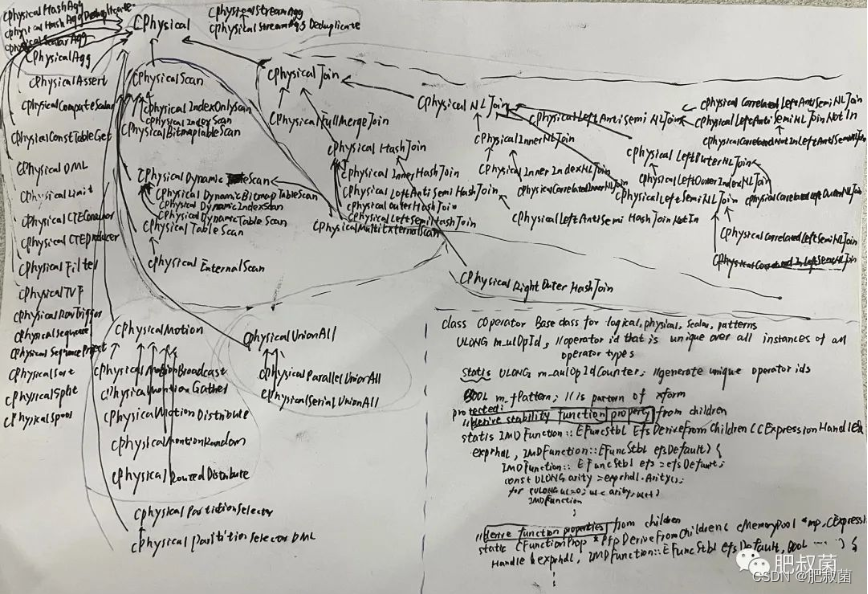 CPhysicalHashAgg
CPhysicalHashAggDeduplicate
CPhysicalScalarAgg
CPhysicalAgg
CPhysicalAssert
CPhysicalComputeScalar
CPhysicalConstTableGet
CPhysical DML
CPhysicalLimit
CPhysical CTEConsumer
CPhysical CTEProducer
CPhysical Filter
CPhysical TVF
CPhysical RowTrigger
CPhysical Sequence
CPhysical SequenceProject
CPhysicalSort
CPhysicalSplit
CPhysicalSpool
CPhysical
CPhysicalStreamAgg
CPhysicalStreamAggDeduplicate
CPhysicalScan
CPhysical IndexOnlyScan
CPhysical IndexScan
CPhysicalBitmapTableScan
CPhysical Dynamic Scan
CPhysical DynamicBitmapTableScan
CPhysical DynamicIndexScan
CPhysical DynamicTableScan
CPhysical TableScan
CPhysical ExternalScan
CPhysicalMultiExternalScan
CPhysicalJoin
CPhysicalFullMergeJoin
CPhysical HashJoin
CPhysical InnerHashJoin
CPhysical LeftAntiSemi HashJoin
CPhysical OuterHashJoin
CPhysical LeftSemiHashJoin
CPhysicalLeftAntiSemi HashJoin NotIn
CPhysical Right Outer HashJoin
CPhysical NLJoin
CPhysicalInnerNLJoin
CPhysical Inner IndexNLJoin
CPhysicalCorrelatedInnerNLJoin
CPhysicalLeftAntiSemi NLJoin
CPhysical Correlated LeftAntiSemi NLJoin
CPhysicalLeftAntiSemi NLJoin NotIn
CPhysicalCorrelatedNotInLeftAntiSemiNLJoin
CPhysical LeftOuterNLJoin
CPhysicalLeftOuterIndexNLJoin
CPhysicalCorrelatedLeftOuterNLJoin
CPhysicalLeftSemiNLJoin
CPhysicalCorrelatedLeftSemiNLJoin
CPhysicalCorrelatedInLeftSemiNLJoin
CPhysicalMotion
CPhysicalMotionBroadcast
CPhysicalMotionGather
CPhysicalMotionDistribute
CPhysicalMotionRandom
CPhysical RoutedDistribute
CPhysicalPartitionSelector
CPhysical PartitionSelector DML
CPhysicalUnionAll
CPhysicalParallelUnionAll
CPhysicalSerialUnionAll
class COperator Base class for logical, physical, scalar, patterns
ULONG m_ulOpId, //operator id that is unique over all instances of all
operator types
static ULONG m_aulOpIdCounter; //generate unique operator ids
BOOL m_fPattern; // is pattern of xform
protected:
//derive stability function property from children
static IMDFunction::EFuncStbl EfsDeriveFromChildren (CExpressionHandle &
exprhdl, IMDFunction::EFuncStbl efsDefault) {
IMDFunction::EFuncStbl efs = efsDefault;
const ULONG arity = exprhdl.Arity();
for (ULONG ul=0; ul<arity, ul++)
IMDFunction
//derive function properties from children
static CFunctionProp *PfpDeriveFromChildren( CMemoryPool *mp, CExpression
Handle &exprhdl, IMDFunction::EFuncStbl efsDefault, BOOL .... ) {
肥叔菌
CSDN @肥叔菌